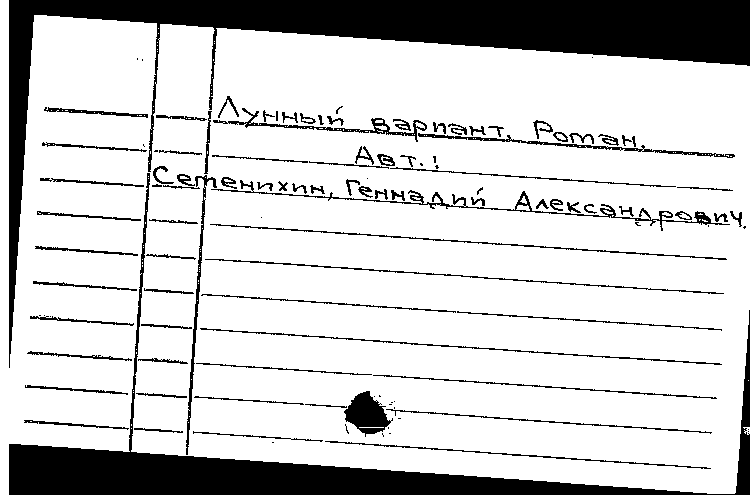 Лунный вариант. Роман.
Авт.:
Семенихин, Геннадий Александрович.